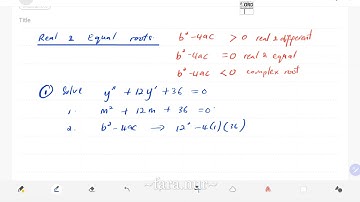 Title
Real & Equal roots
b² - 4ac > 0 real & different
b² - 4ac = 0 real & equal
b² - 4ac < 0 complex root
① Solve y" + 12y' + 36 = 0
1. m² + 12m + 36 = 0
2. b² - 4ac → 12² - 4(1)(36)
~fara.nur~